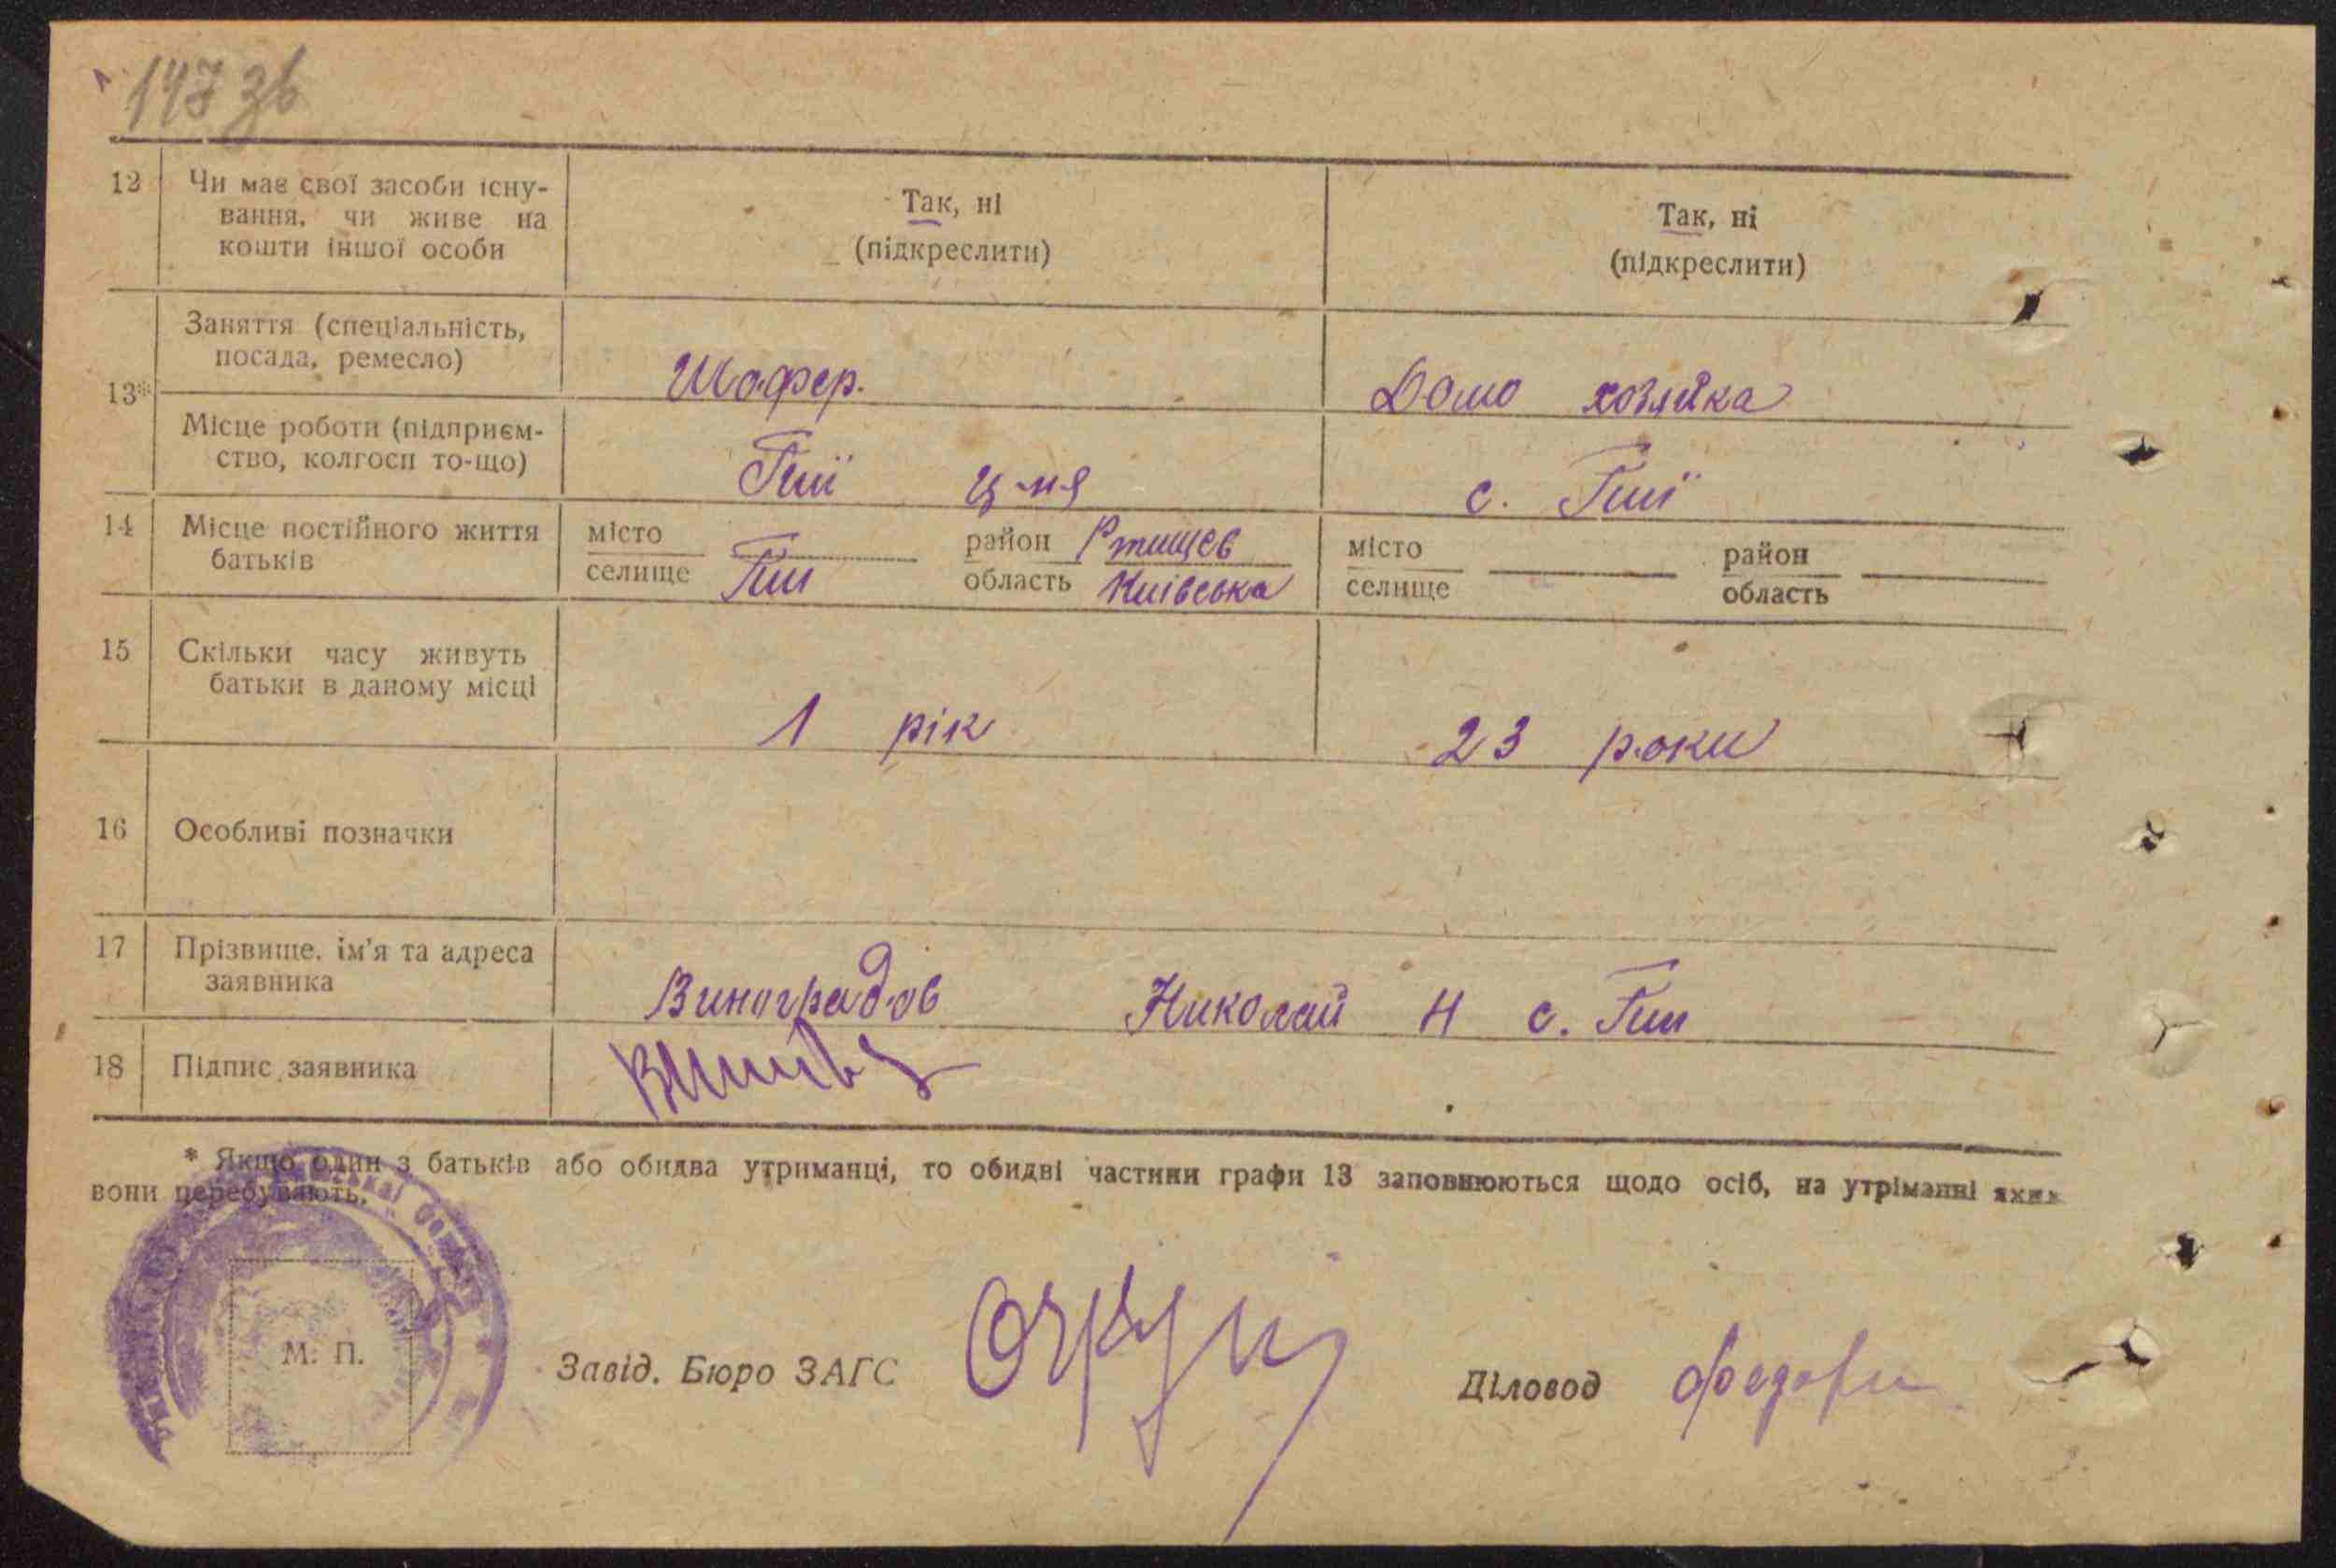 147 зв
12 Чи має свої засоби існу-
вання, чи живе на
кошти іншої особи
Так, ні
(підкреслити)
Так, ні
(підкреслити)
13*
Заняття (спеціальність,
посада, ремесло)
Шофер.
Домо хозяйка
Місце роботи (підприєм-
ство, колгосп то-що)
Гиї
с. Гиї
14 Місце постійного життя
батьків
місто
селище
район Ртищев
область Київська
місто
селище
район
область
15 Скільки часу живуть
батьки в даному місці
1 рік
23 роки
16 Особливі позначки
17 Прізвище, ім'я та адреса
заявника
Виноградов Николай Н с.
18 Підпис заявника
* Якщо один з батьків або обидва утриманці, то обидві частини графи 13 заповнюються щодо осіб, на утріманні яких
вони перебувають.
М. П.
Завід. Бюро ЗАГС
Діловод